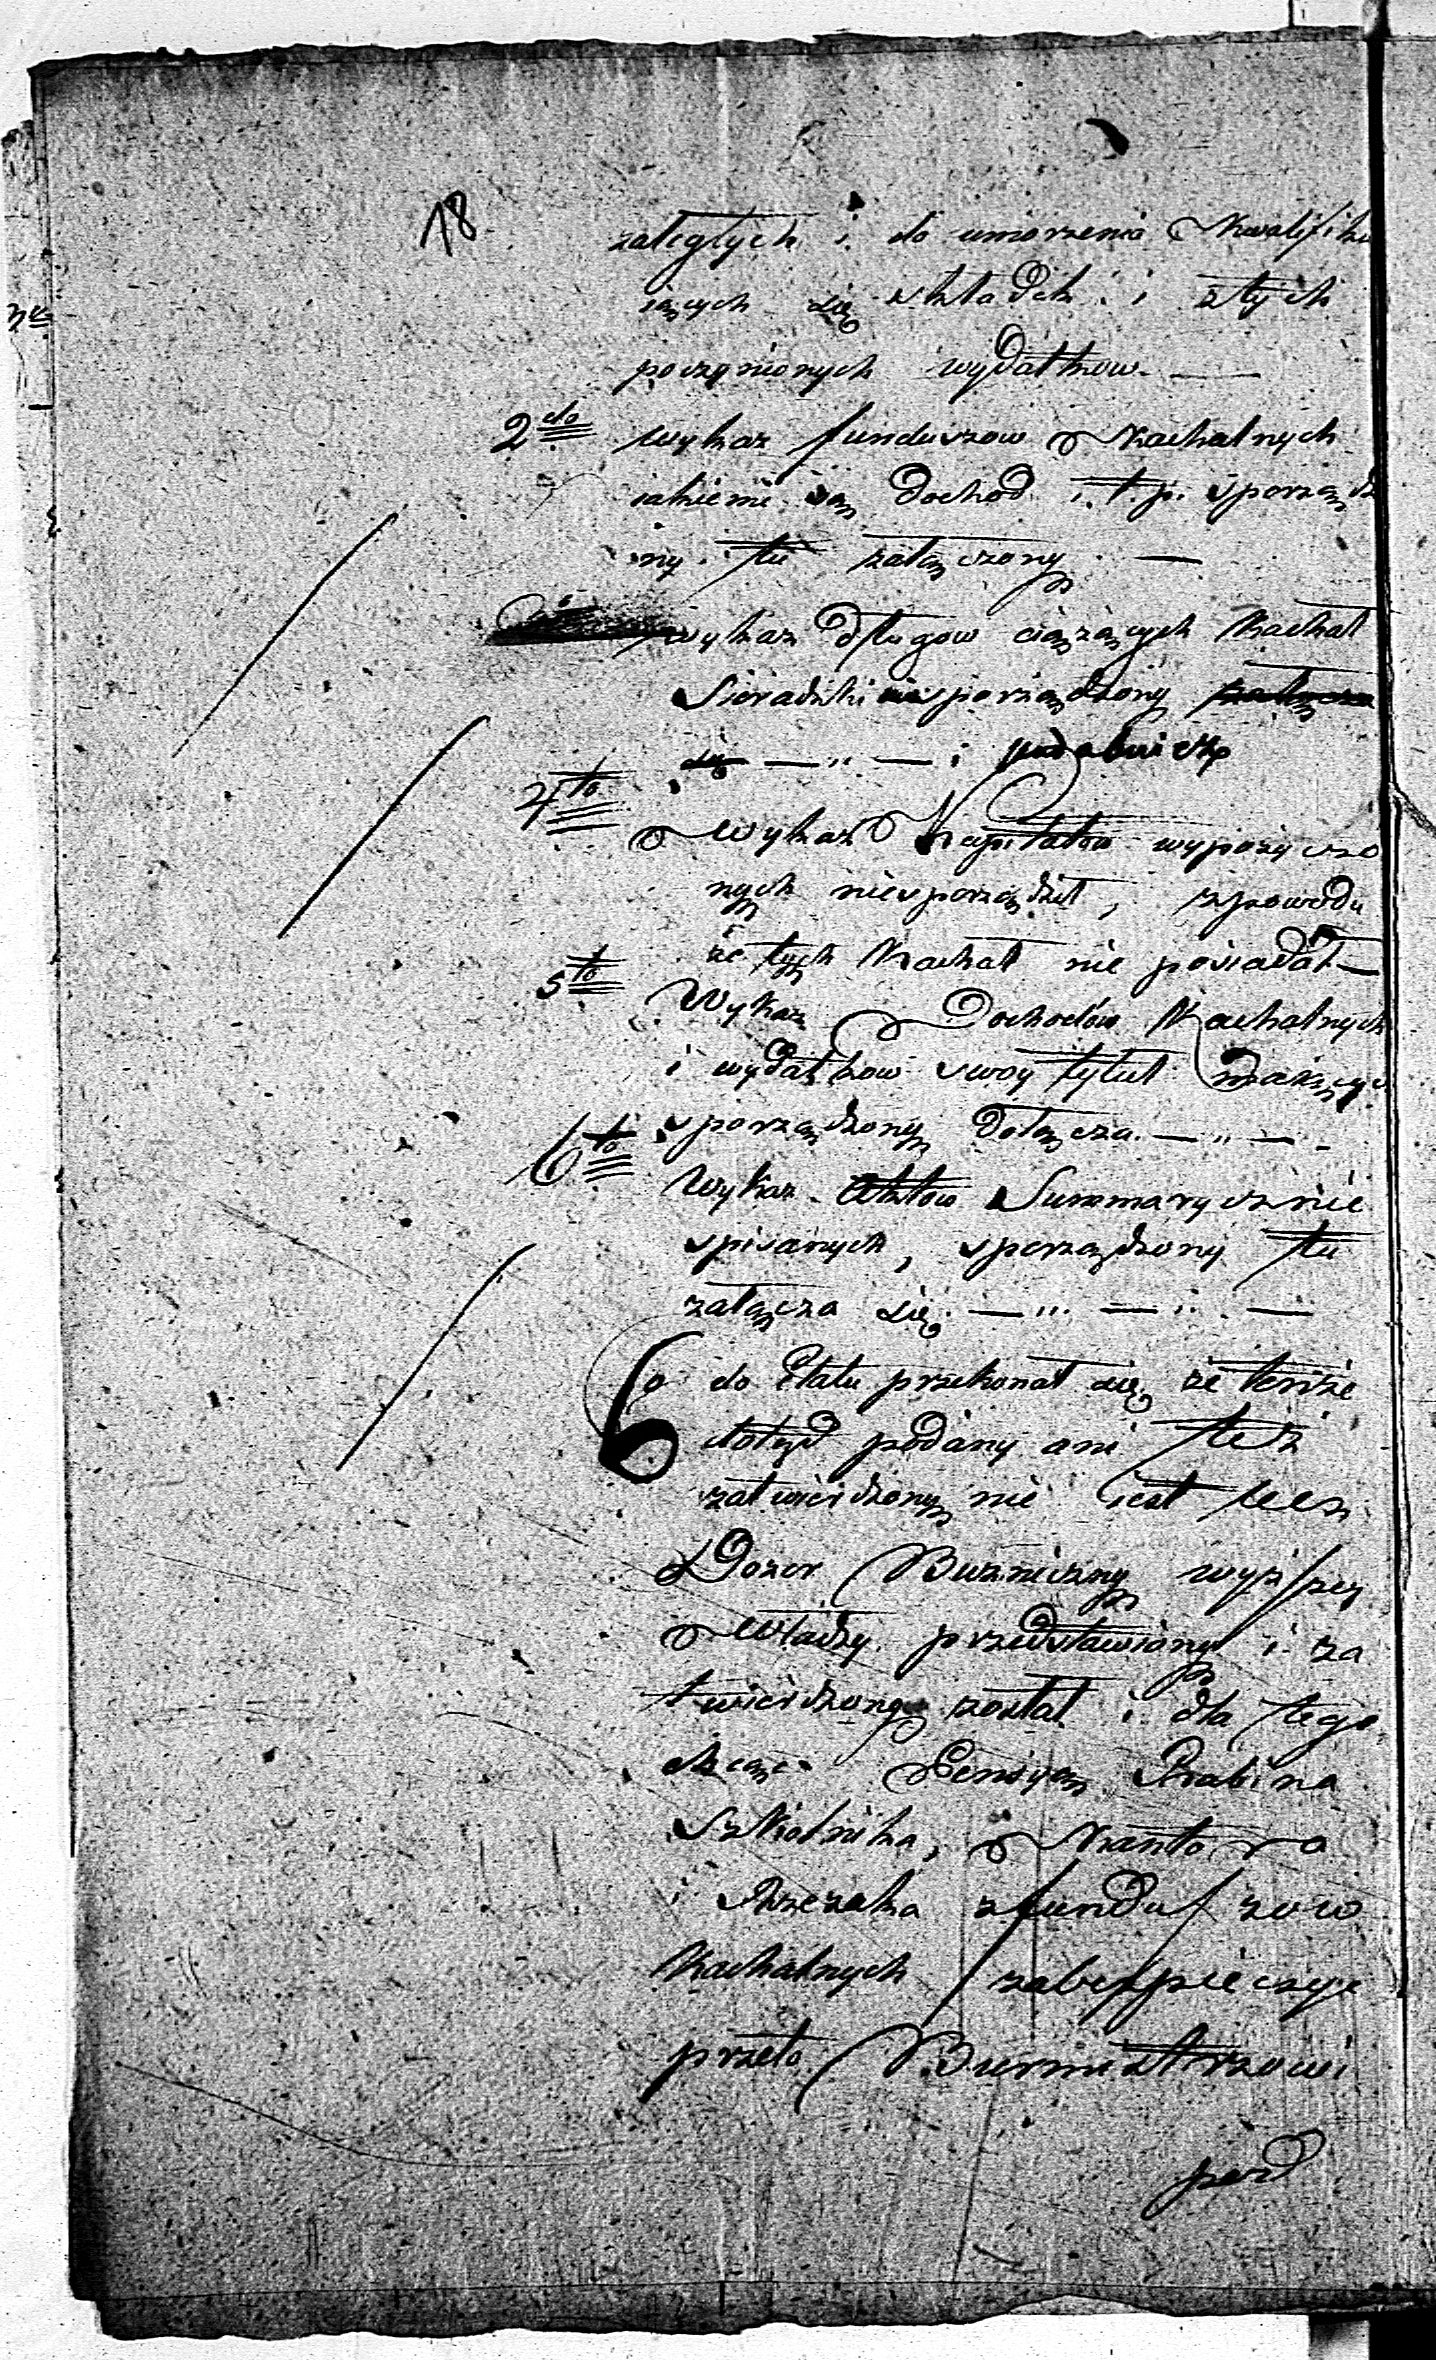 18
zaległych i do umorzenia kwalifiku
iących się składek i z tych
poczynionych wydatkow. —
2do wykaz funduszow kachalnych
iakiemi są dochod i. t. p. sporządz
ny tu załączony. —
wykaz długow ciążących kachał
Sieradzki sporządzony
się — „ — i
4to
Wykaz Kapitałow wypożyczo
nych niesporządził, z powodu
5to że tych kachał nie posiadał —
Wykaz Dochodów Kachalnych
i wydatkow swoy tytuł maiący
sporządzony dołącza. — „ —
6to
Wykaz Aktow Summarycznie
spisanych, sporządzony tu
załącza się. — „. — „. —
6 do Etatu przekonał się że tenże
dotąd podany ani też
zatwierdzony nie iest lecz
Dozor Bużniczny wyższey
Władzy przedstawiony i za
twierdzony został i dla tego
chcąc Pensyą Rabina
Szkolnika, Kantora
i Rzezaka z funduszow
Kachalnych zabezpieczyć
przeto Burmistrzowi
pod